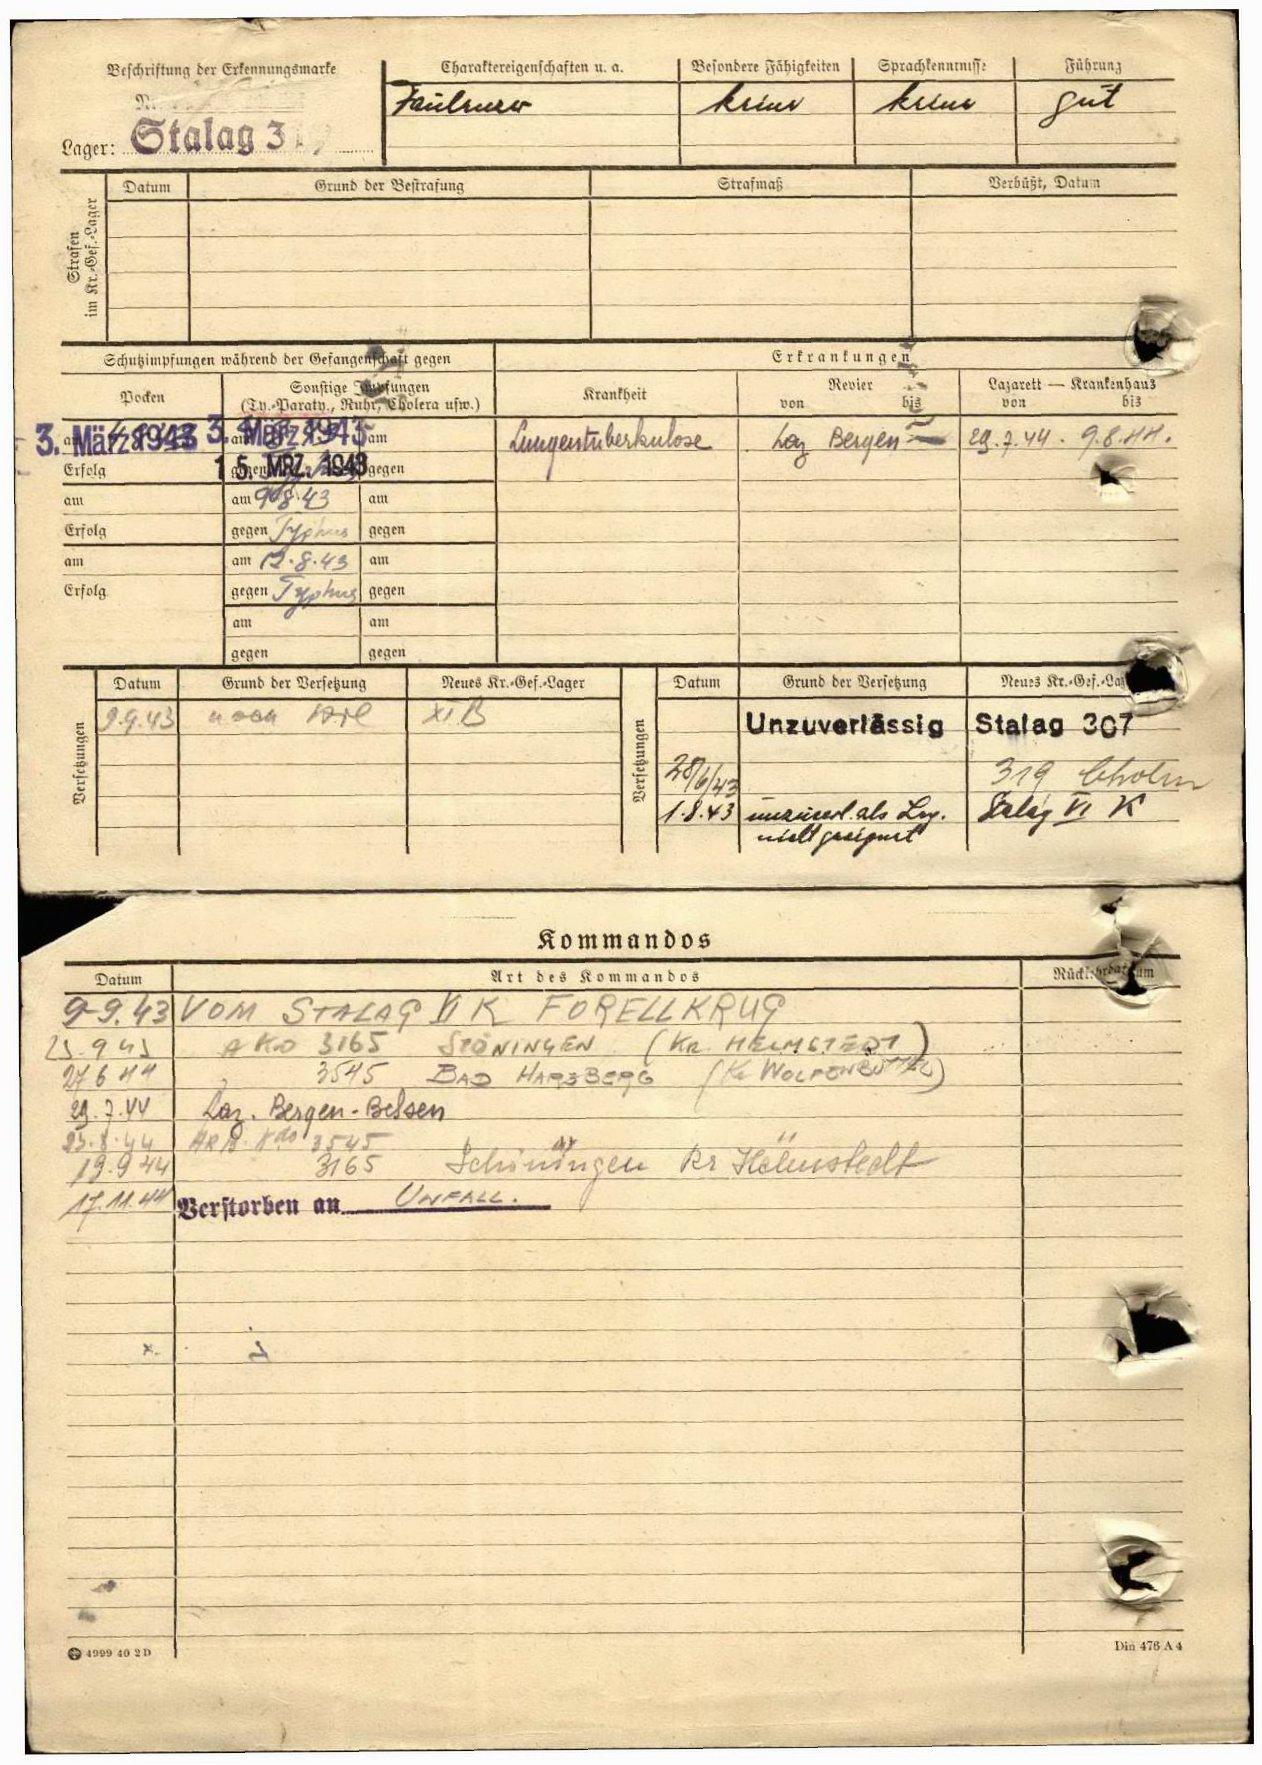 Beschriftung der Erkennungsmarke
Charaktereigenschaften u. a.
Besondere Fähigkeiten
Sprachkenntnisse
Führung
keine
keine
gut
Lager: Stalag 3
Strafen im Kr.-Gef.-Lager
Datum
Grund der Bestrafung
Strafmaß
Verbüßt, Datum
Schutzimpfungen während der Gefangenschaft gegen
Erkrankungen
Pocken
Sonstige Impfungen
(Ty.-Paraty., Ruhr, Cholera usw.)
Krankheit
Revier
von bis
Lazarett — Krankenhaus
von bis
am 3. März 1943
am 3. März 1943
am
Lungentuberkulose
Laz Bergen
29.7.44. 9.8.44.
Erfolg
gegen 15. MRZ. 1943
gegen
am
am 9.8.43
am
Erfolg
gegen Typhus
gegen
am
am 12.8.43
am
Erfolg
gegen Typhus
gegen
am
am
gegen
gegen
Versetzungen
Datum
Grund der Versetzung
Neues Kr.-Gef.-Lager
9.9.43
XI B
Versetzungen
Datum
Grund der Versetzung
Neues Kr.-Gef.-Lag
Unzuverlässig
Stalag 307
28/6/43
319 Cholm
1.8.43
unzuverl. als Lag.
nicht geeignet
Stalag VI K
Kommandos
Datum
Art des Kommandos
9-9.43 VOM STALAG VI K FORELLKRUG
23.9 43 AKO 3165 SCHÖNINGEN (KR. HELMSTEDT)
27 6 44 3545 BAD HARZBERG (Kr WOLFENBÜTTEL)
29.7.44 Laz. Bergen-Belsen
23.8.44 ARB. Kdo 3545
19.9 44 3165 Schöningen Kr Helmstedt
17.11.44 Verstorben an UNFALL.
4999 40 2 D
Din 476 A 4